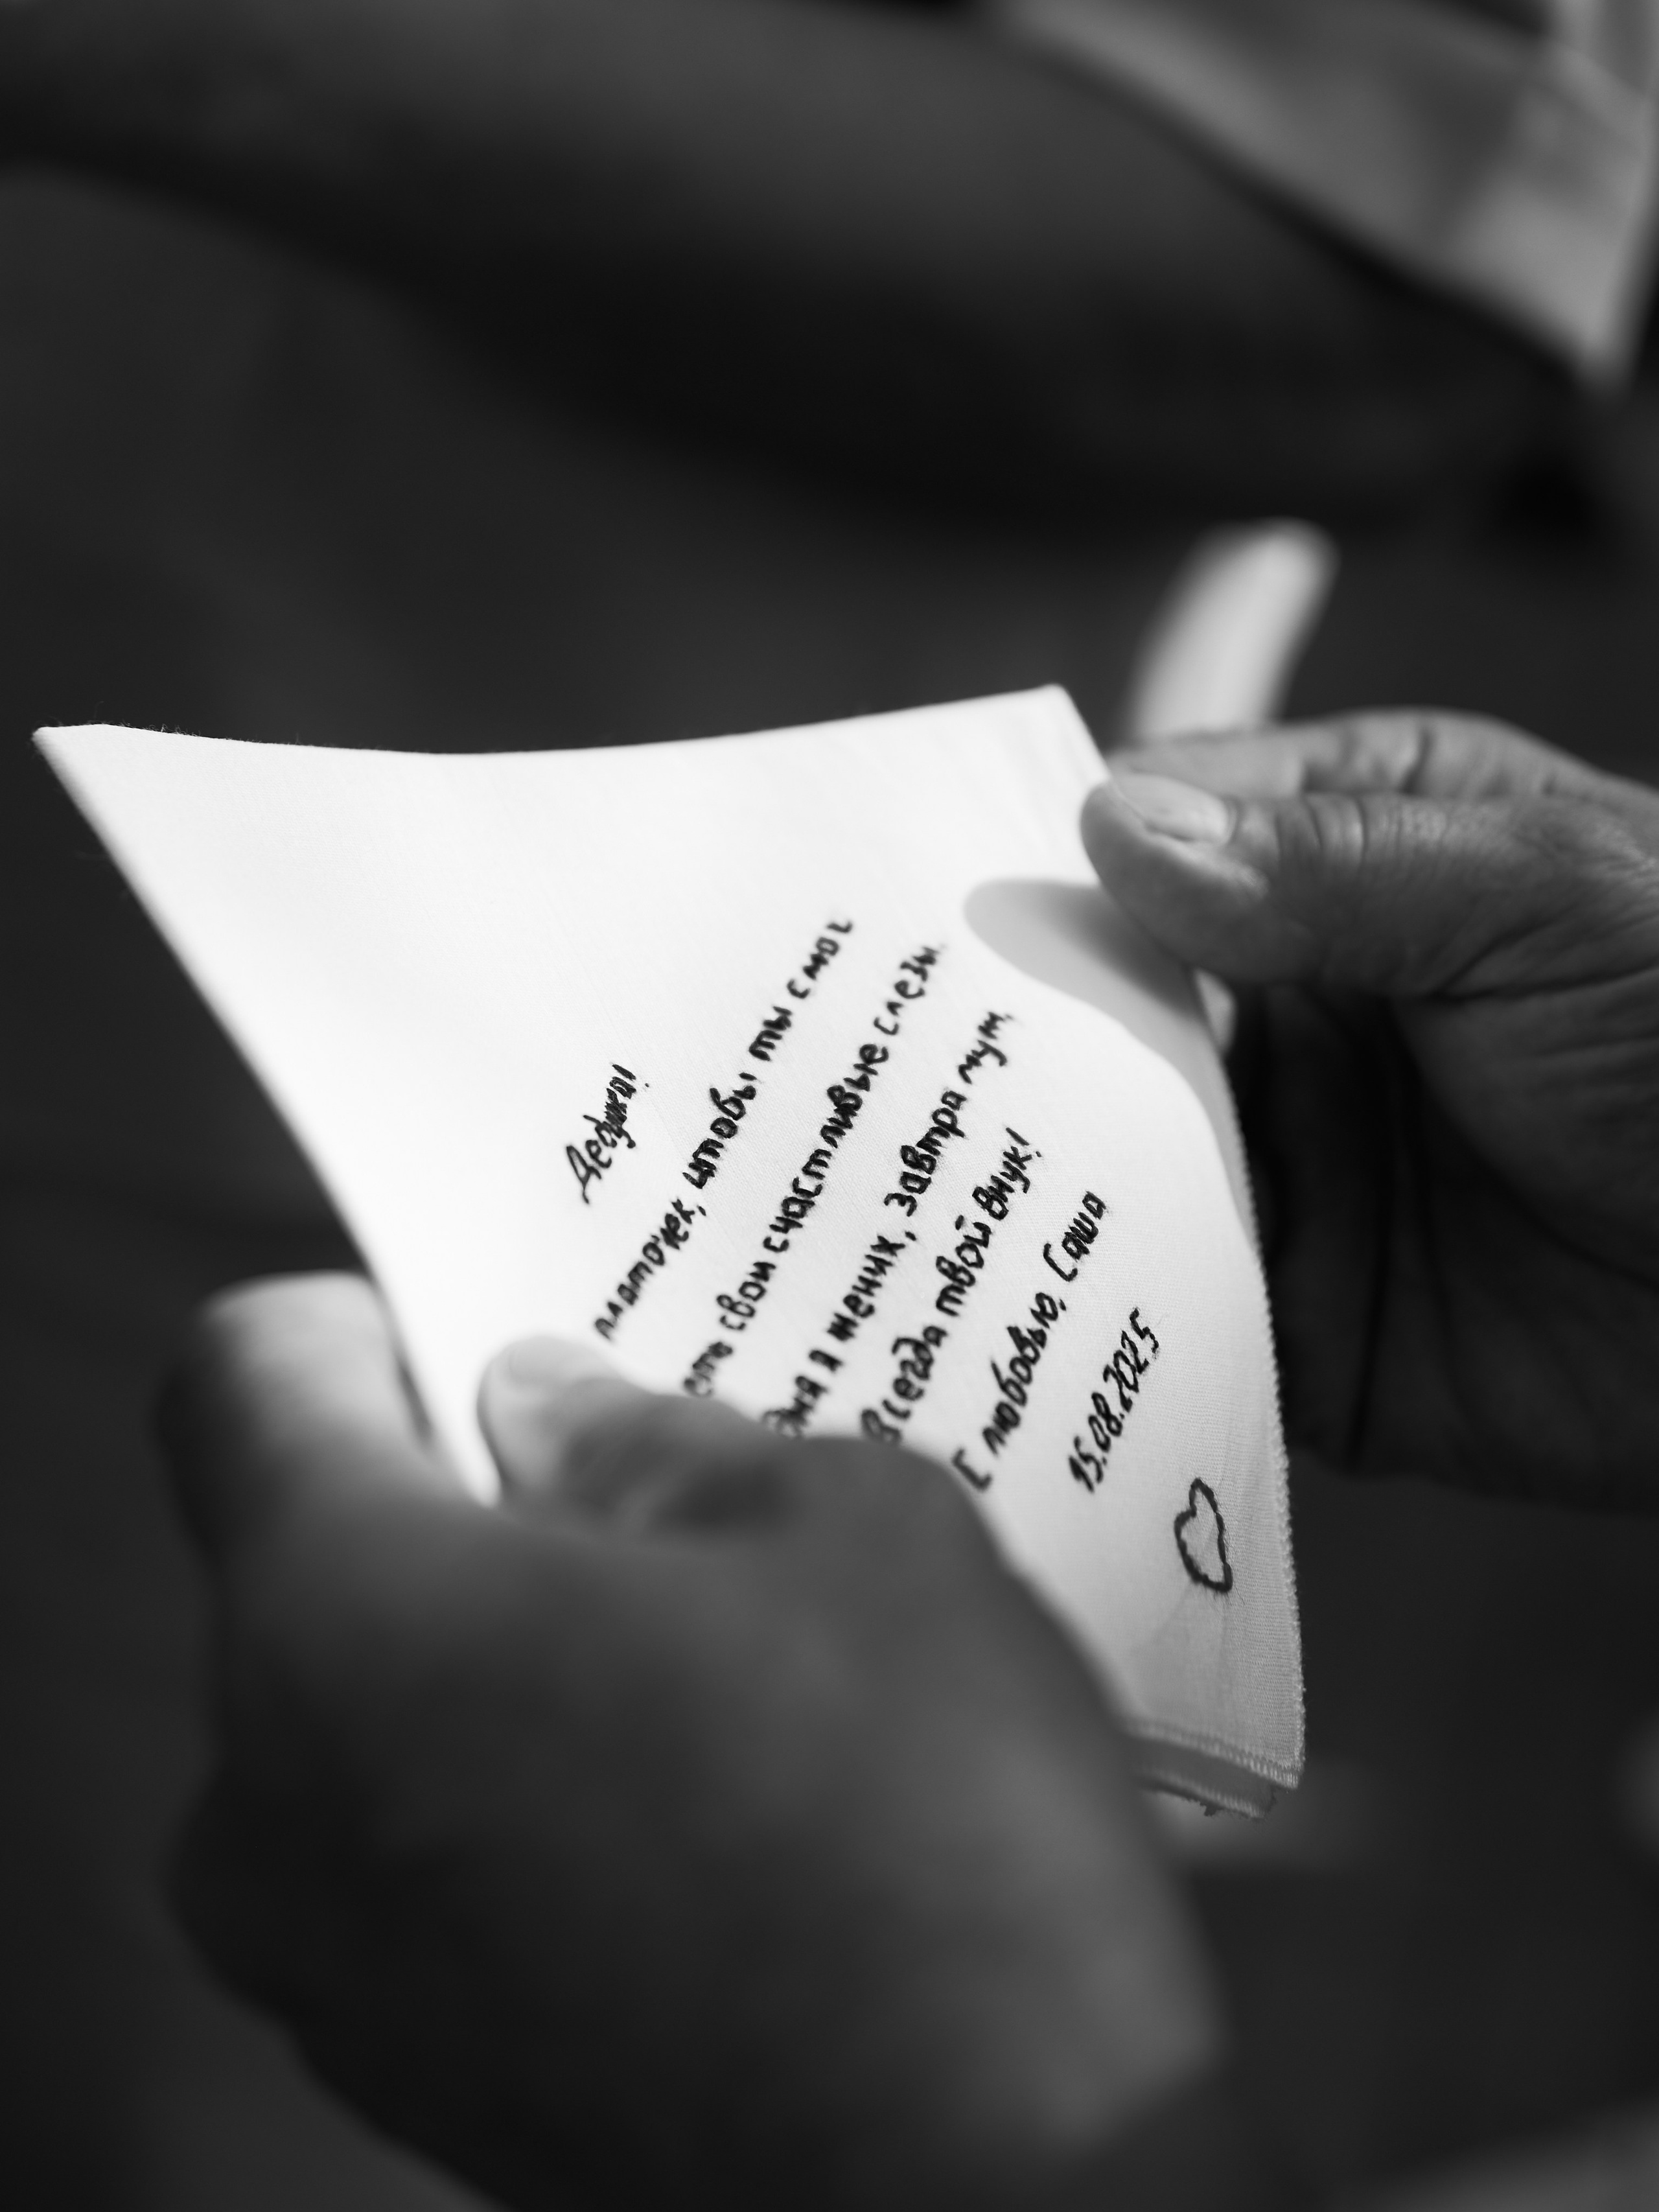 Дедушка!
платочек, чтобы ты смог
свои счастливые слезы.
я жених, завтра муж,
всегда твой внук!
С любовью, Саша
15.08.2025